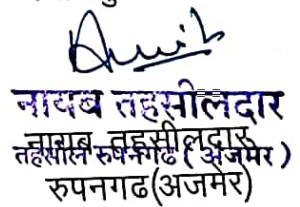 नायब तहसीलदार
नायब तहसीलदार
तहसील रुपनगढ ( अजमेर )
रुपनगढ(अजमेर)